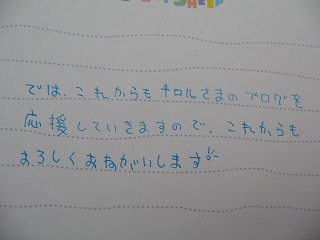 SHEEP
では、これからもチロルさまのブログを
応援していきますので、これからも
よろしくおねがいします!